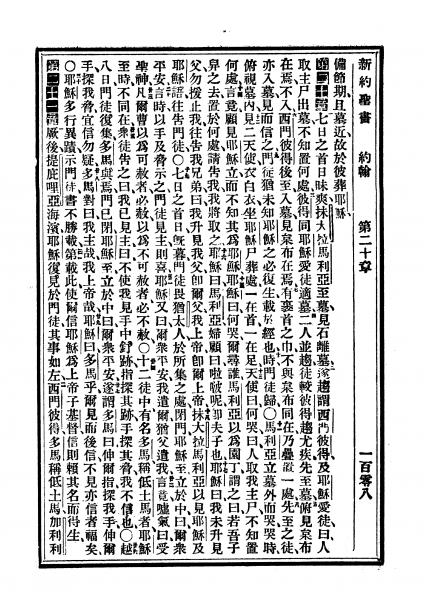 新約聖書 約翰 第二十章 一百零八
備節期且墓近故於彼葬耶穌
第二十章 七日之首日昧爽抹大拉馬利亞至墓見石離墓遂趨謂西門彼得及耶穌愛徒曰人
取主尸出墓不知置何處彼得同耶穌愛徒適墓二人並趨徒較彼得趨尤疾先至墓俯見枲布
在焉不入西門彼得後至入墓見枲布在焉有裹首之巾不與枲布同在乃疊置一處先至之徒
亦入墓見而信之門徒猶未知耶穌之必復生載於經也時門徒歸○馬利亞立墓外而哭哭時
俯視墓內見二天使衣白衣坐耶穌尸葬處一在首一在足天使曰何哭曰人取我主尸不知置
何處言竟顧見耶穌立而不知其為耶穌耶穌曰何哭爾尋誰馬利亞以為園丁謂之曰若吾子
舁之去置於何處請告我我將取之耶穌曰馬利亞婦顧曰啦呢即夫子也耶穌曰我未升見
父勿援止我往告我兄弟曰我升見我父即爾父我上帝即爾上帝抹大拉馬利亞以見耶穌及
耶穌語往告門徒○七日之首日既暮門徒畏猶太人於所集之處閉門耶穌至立於中曰爾眾
平安言時以手及脅示之門徒見主則喜耶穌又曰爾眾平安我遣爾猶父遣我言竟噓氣曰受
聖神凡爾曹以為可赦者必赦以為不可赦者必不赦○十二徒中有名多馬稱低土馬者耶穌
至時不同在眾徒告之曰我已見主曰不使我見手中釘跡指探其跡手探其脅不信也○越
八日門徒復集多馬與焉門已閉耶穌至立於中曰爾眾平安遂謂多馬曰伸爾指探我手伸爾
手探我脅宜信勿疑多馬對曰我主哉我上帝哉耶穌曰多馬乎爾見而後信不見亦信者福矣
○耶穌多行異蹟示門徒書不勝載第載此使爾信耶穌為上帝子基督信則賴其名而得生
第二十一章 厥後提庇哩亞海濱耶穌復見於門徒其事如左西門彼得多馬稱低土馬加利利